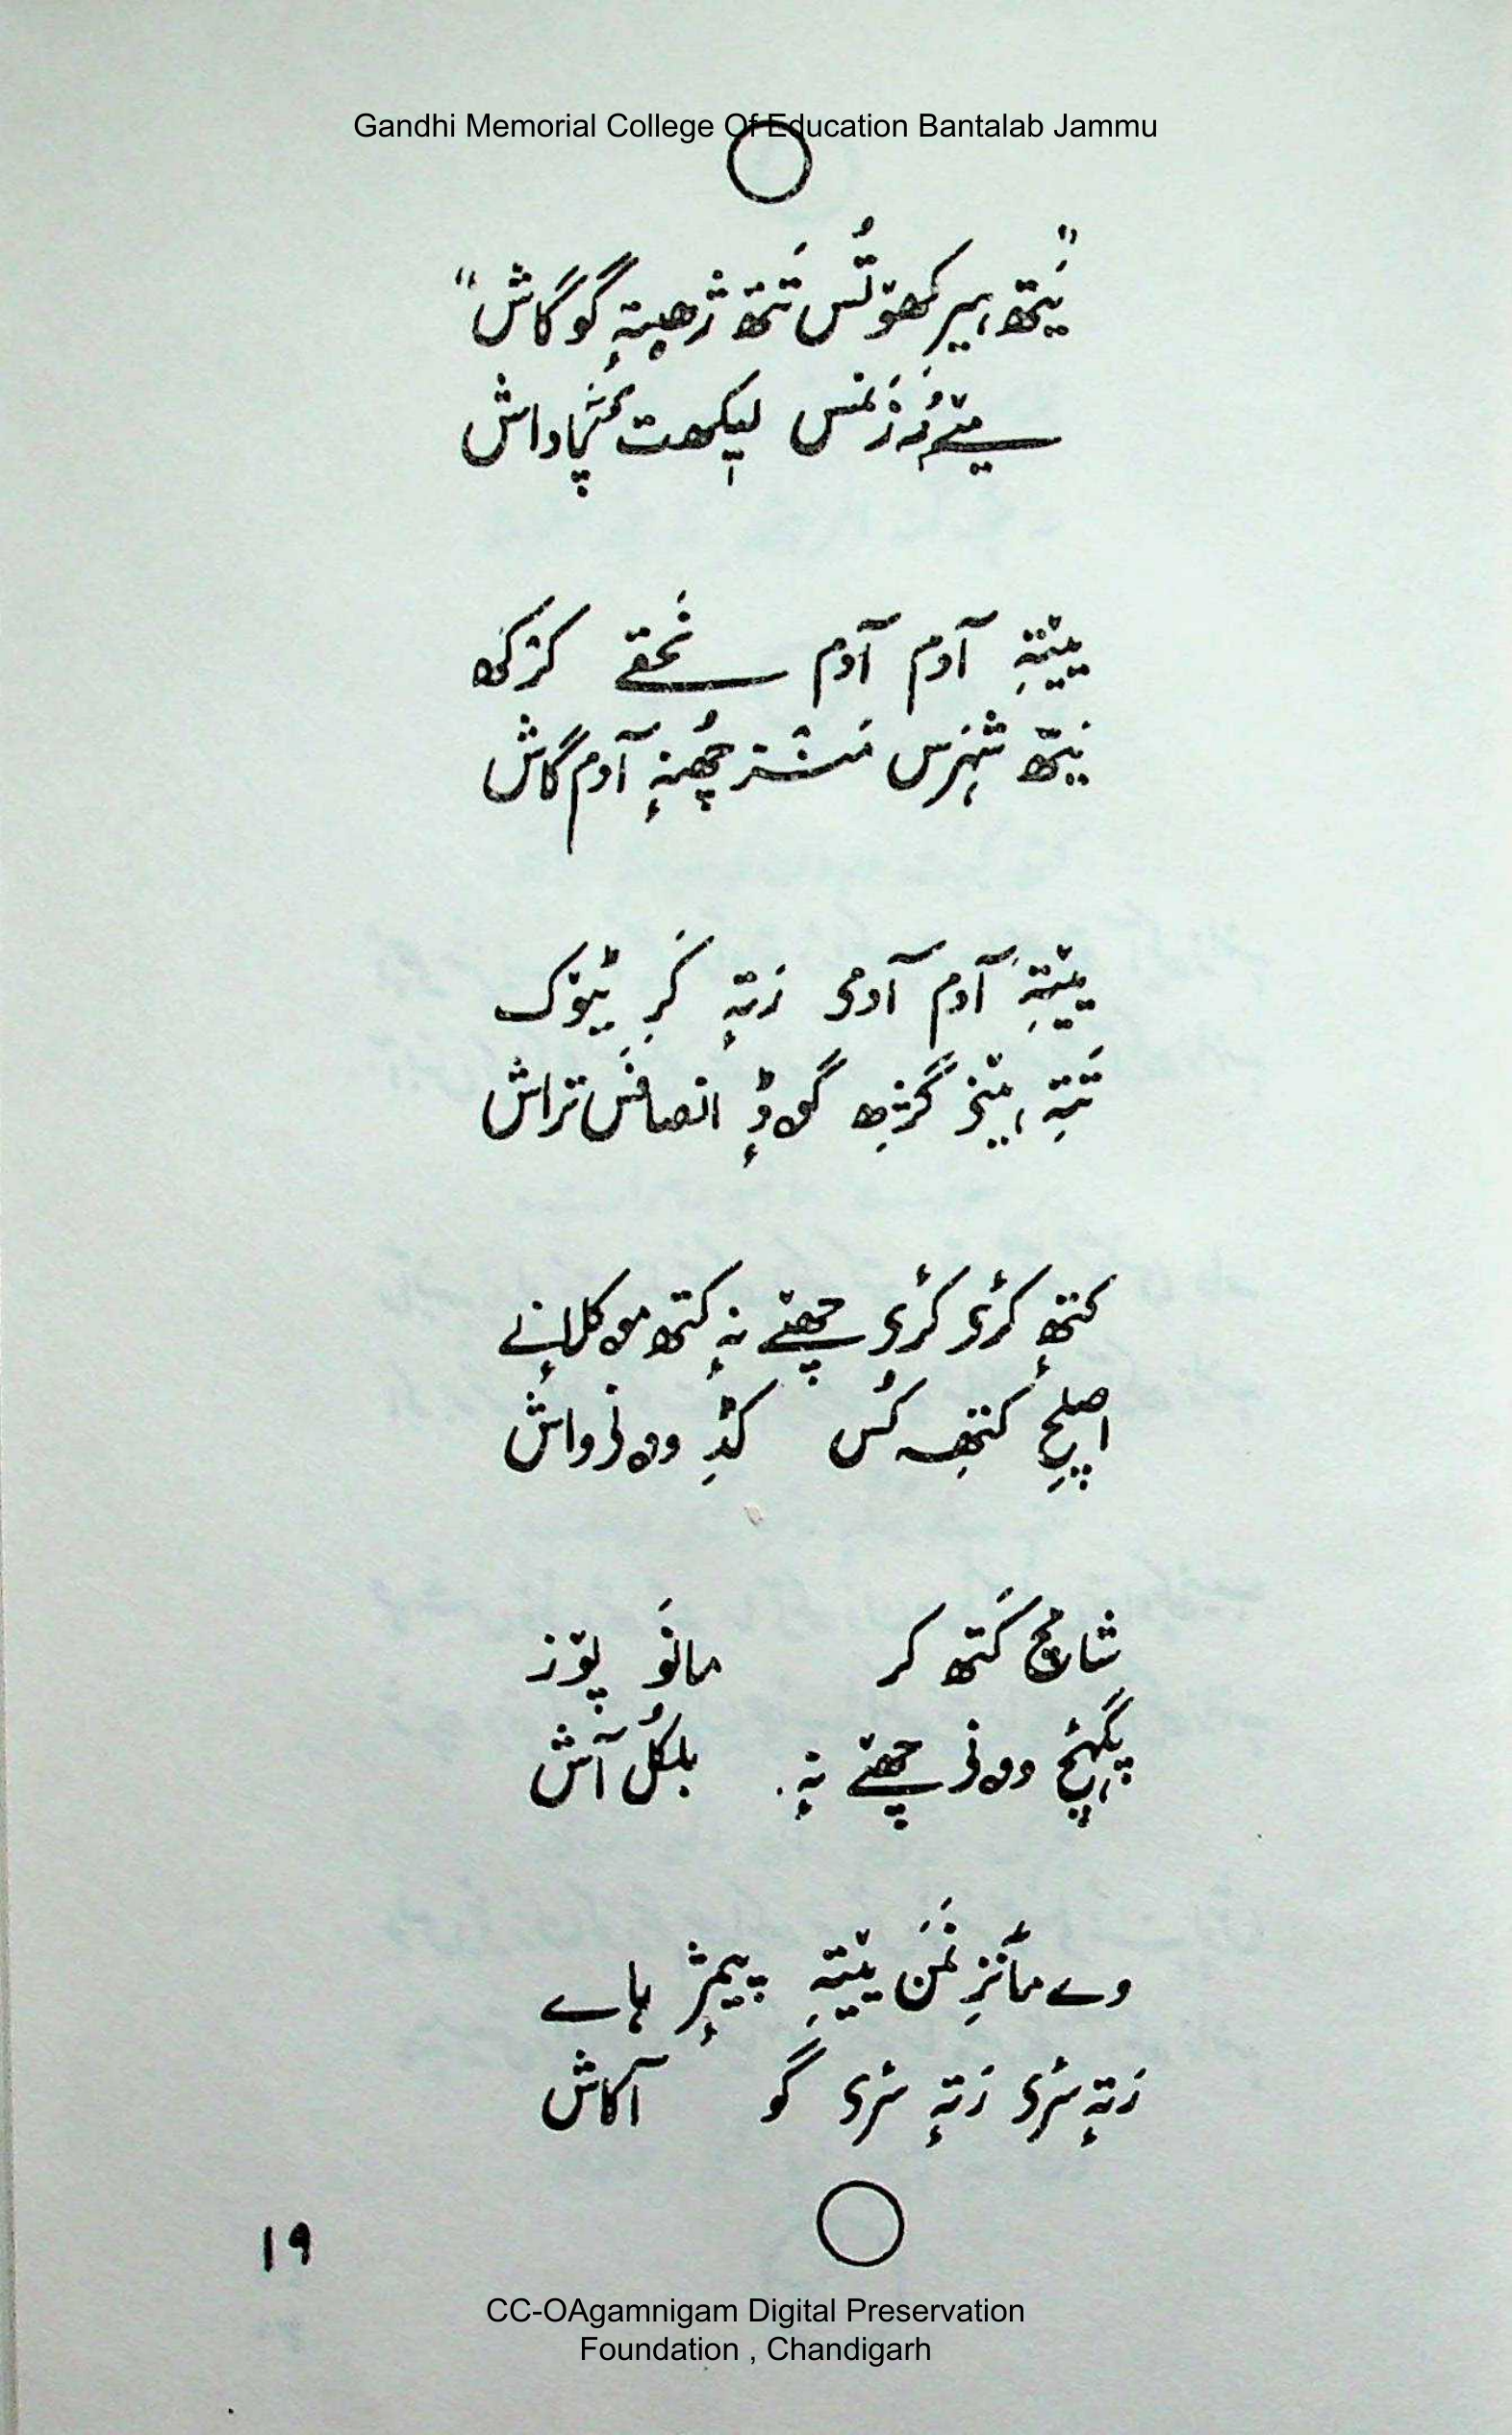 Gandhi Memorial College Of Education Bantalab Jammu
"یَتھ ہیرِ کھوٚتُس تَتھ ژھیتہٕ گو گاش"
لیکھت پاداش
ییٚتہِ آدم آدم نَختے کڑکھ
یَتھ شہرس منٛز چھُنہٕ آدم گاش
ییٚتہِ آدم آدمی زتہٕ کَرِ ٹیوٚک
تَتہِ گژھِ گۄڈٕ انصافَس تراش
کتھٕ کٔرۍ کٔرۍ چھےٚ نہٕ کتھ موکلانے
اصلچ کتھِ کُس کڈِ وۄنۍ واش
شامچ کَتھ کر مانَو پوٚز
پگہٕچ وۄنۍ چھےٚ نہٕ بلکُل آش
وے مٲنزِ نَمَن ییٚتہِ پییمژٕ ہاے
زَتہٕ سٔری زَتہٕ سٔری گو آکاش
۱۹
CC-OAgamnigam Digital Preservation
Foundation , Chandigarh